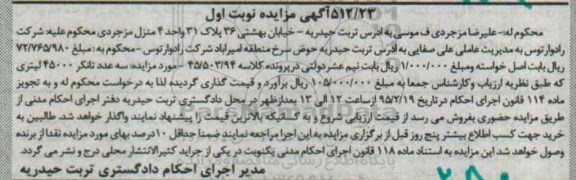 ۵۱۲/۲۳آگهی مزایده نوبت اول
محکوم له:- علیرضا مزجردی ف موسی به ادرس تربت حیدریه - خیابان بهشتی ۳۶ پلاک ۳۱ واحد ۴ منزل مزجردی محکوم علیه: شرکت
رادوار توس به مدیریت عاملی علی صفایی به ادرس تربت حیدریه حوض سرخ منطقه امیراباد شرکت رادوار توس - محکوم به : مبلغ ۷۲/۷۶۵/۹۸۰
ریال بابت اصل خواسته ومبلغ ۱/۰۰۰/۰۰۰ ریال بابت نیم عشر دولتی در پرونده کلاسه ۴۵/۵۰۳/۹۴ - مورد مزایده: سه عدد تانکر ۴۵۰۰۰ لیتری
که طبق نظریه ارزیاب و کارشناس جمعا به مبلغ ۱۰۵/۰۰۰/۰۰۰ ریال برآورد و قیمت گذاری گردیده لذا به درخواست محکوم له و به تجویز
ماده ۱۱۴ قانون اجرای احکام در تاریخ ۹۵/۲/۱۹ از ساعت ۱۲ الی ۱۳ بعدازظهر در محل دادگستری تربت حیدریه دفتر اجرای احکام مدنی از
طریق مزایده حضوری بفروش می رسد از قیمت ارزیابی شروع و به کسانیکه بالاترین قیمت را پیشنهاد نمایند واگذار خواهد شد. طالبین به
خرید جهت کسب اطلاع بیشتر پنج روز قبل از برگزاری مزایده به این اجرا مراجعه نمایند ضمنا حداقل ۱۰درصد بهای مورد مزایده نقدا از برنده
وصول خواهد شد این مزایده به استناد ماده ۱۱۸ قانون اجرای احکام مدنی یکنوبت در یکی از جراید کثیرالانتشار محلی درج و نشر می گردد.
مدیر اجرای احکام دادگستری تربت حیدریه